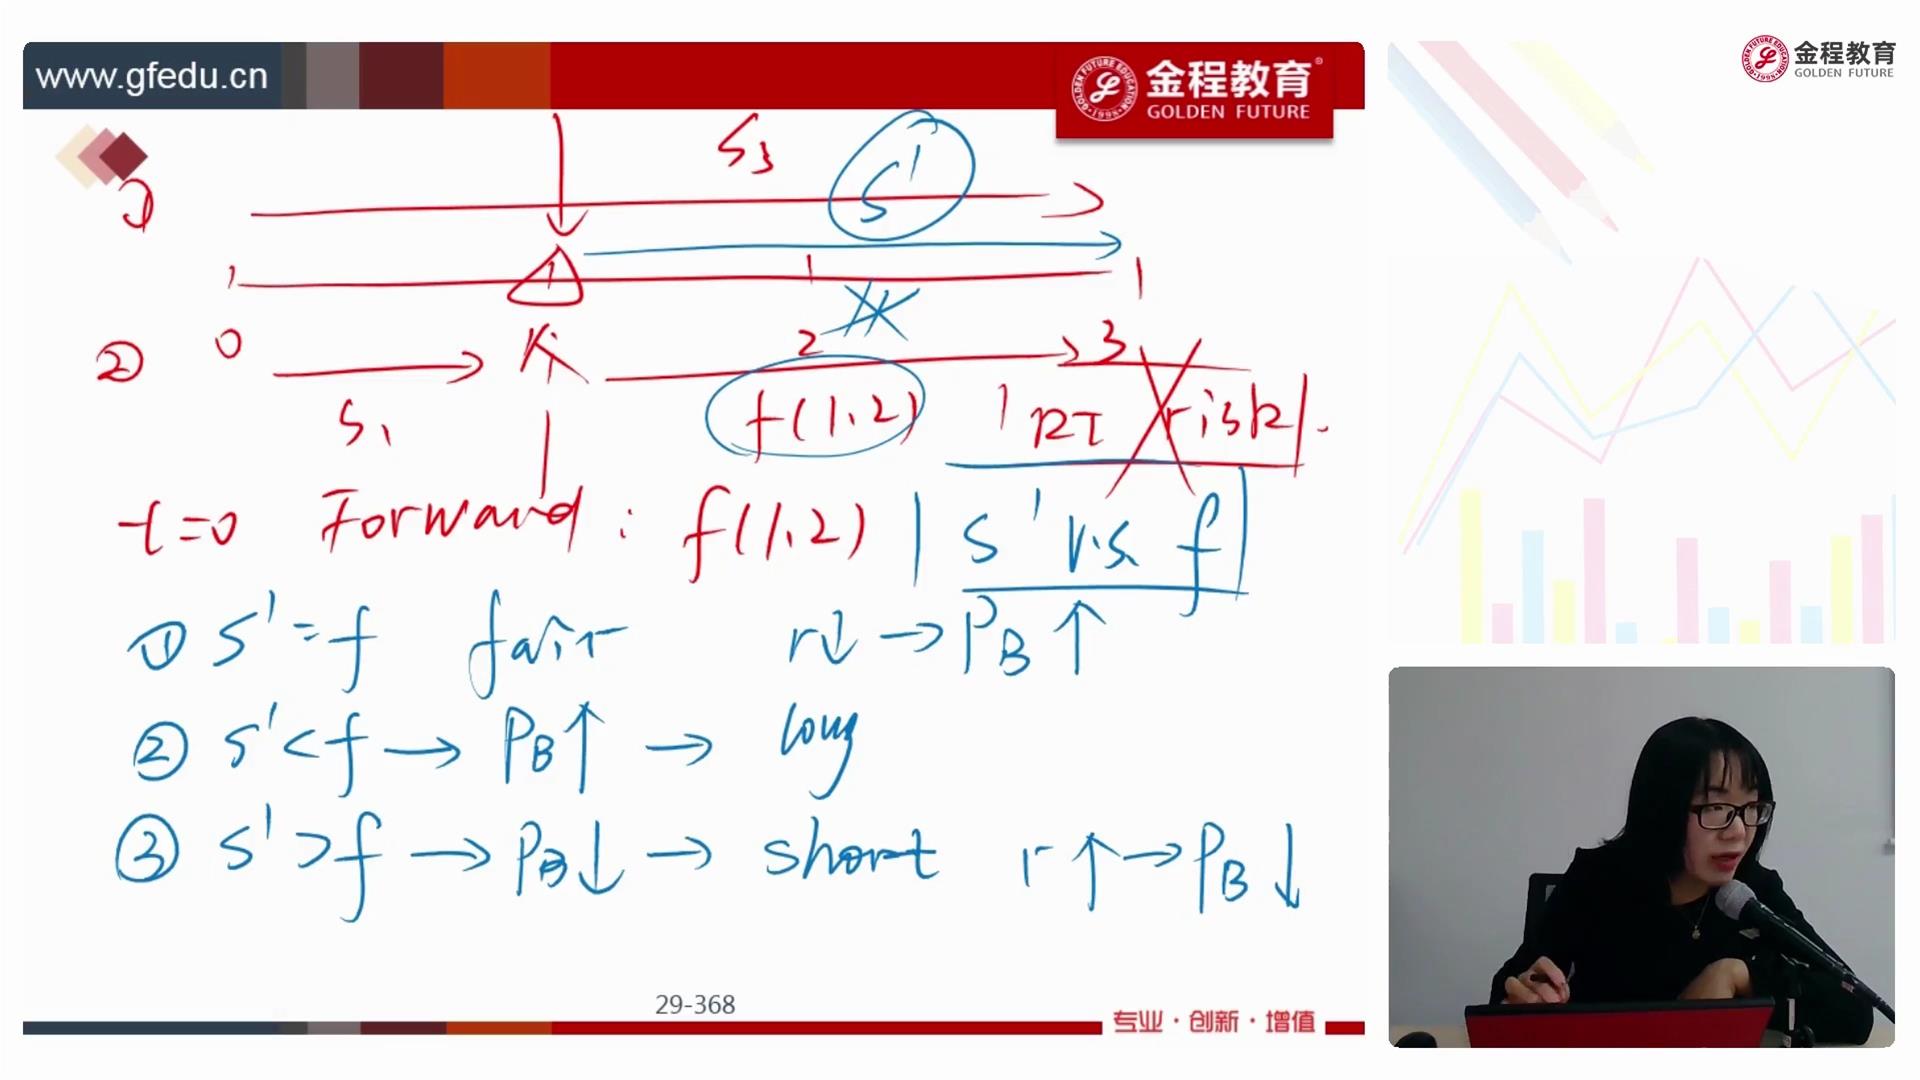 www.gfedu.cn
金程教育
GOLDEN FUTURE
金程教育®
GOLDEN FUTURE
S₃ S'
①
1 1 1 1
② 0 2 3
S₁ f(1,2) RI risk
t=0 Forward: f(1,2) | S' v.s. f
① S'=f fair r↓→P_B↑
② S'<f→P_B↑→long
③ S'>f→P_B↓→short r↑→P_B↓
29-368
专业·创新·增值